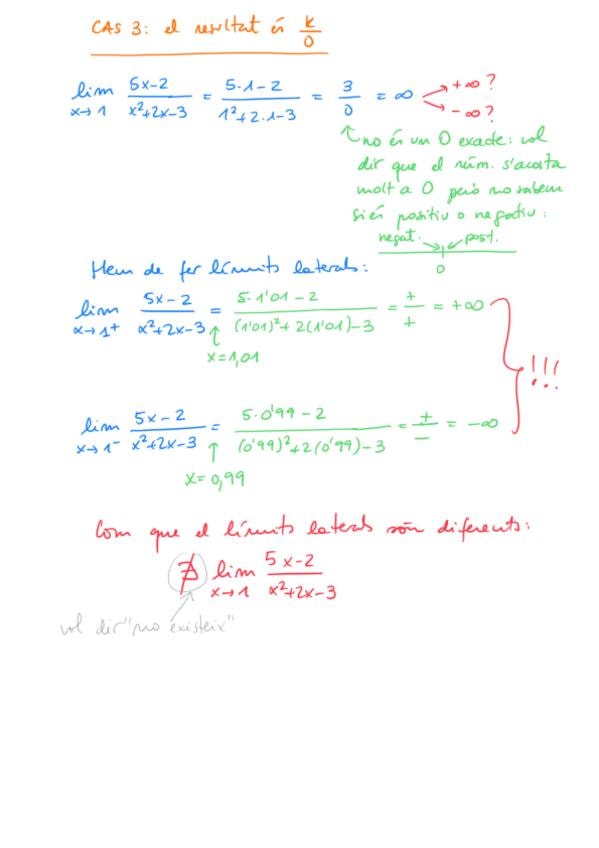 CAS 3: el resultat és k/0
lim x→1 (5x-2)/(x²+2x-3) = (5·1-2)/(1²+2·1-3) = 3/0 = ∞ → +∞? → -∞?
no és un 0 exacte: vol
dir que el núm. s'acosta
molt a 0 però no sabem
si és positiu o negatiu:
negat. posit.
0
Hem de fer límits laterals:
lim x→1⁺ (5x-2)/(x²+2x-3) = (5·1'01-2)/((1'01)²+2(1'01)-3) = +/+ = +∞
x=1,01
!!!
lim x→1⁻ (5x-2)/(x²+2x-3) = (5·0'99-2)/((0'99)²+2(0'99)-3) = +/- = -∞
x=0,99
Com que el límits laterals són diferents:
∄ lim x→1 (5x-2)/(x²+2x-3)
vol dir "no existeix"